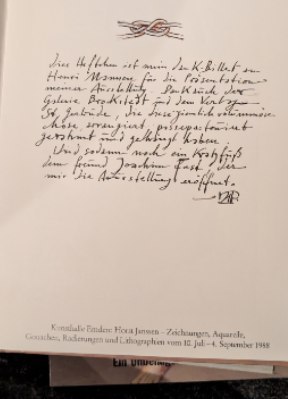 Dies Heftchen ist mein dank-Billet an
Henri Nannen für die Präsentation
meiner Ausstellung. Dank Stück der
Galerie Brockstedt und dem Verlag
St. Gertrude, die diese ziemlich voluminöse
Chose arrangiert,
gerahmt und gehängt haben.
Und sodann noch ein Kratzfuß
dem freund Joachim Fest, der
mir die Ausstellung eröffnet.
Kunsthalle Emden: Horst Janssen – Zeichnungen, Aquarelle,
Gouachen, Radierungen und Lithographien vom 10. Juli – 4. September 1988